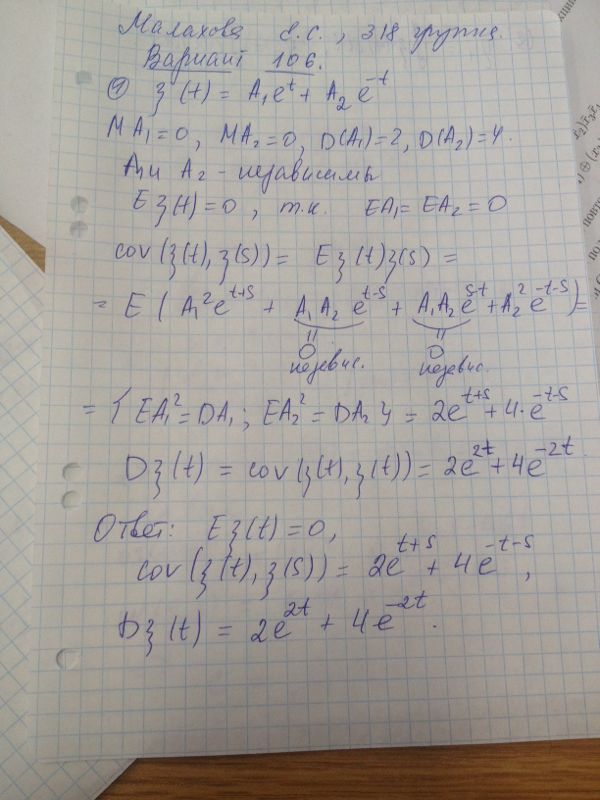 Малахова Е.С., 318 группа.
Вариант 106.
① ξ(t) = A₁eᵗ + A₂e⁻ᵗ
MA₁=0, MA₂=0, D(A₁)=2, D(A₂)=4.
A₁ и A₂ - независимы
Eξ(t)=0, т.к. EA₁= EA₂ = 0
cov(ξ(t), ξ(s)) = Eξ(t)ξ(s) =
= E(A₁²e^{t+s} + A₁A₂e^{t-s} + A₁A₂e^{s-t} + A₂²e^{-t-s}) =
॥ ॥
0 0
независ. независ.
= {EA₁² = DA₁; EA₂² = DA₂} = 2e^{t+s} + 4·e^{-t-s}
Dξ(t) = cov(ξ(t), ξ(t)) = 2e^{2t} + 4e^{-2t}
Ответ: Eξ(t) = 0,
cov(ξ(t), ξ(s)) = 2e^{t+s} + 4e^{-t-s},
Dξ(t) = 2e^{2t} + 4e^{-2t}.